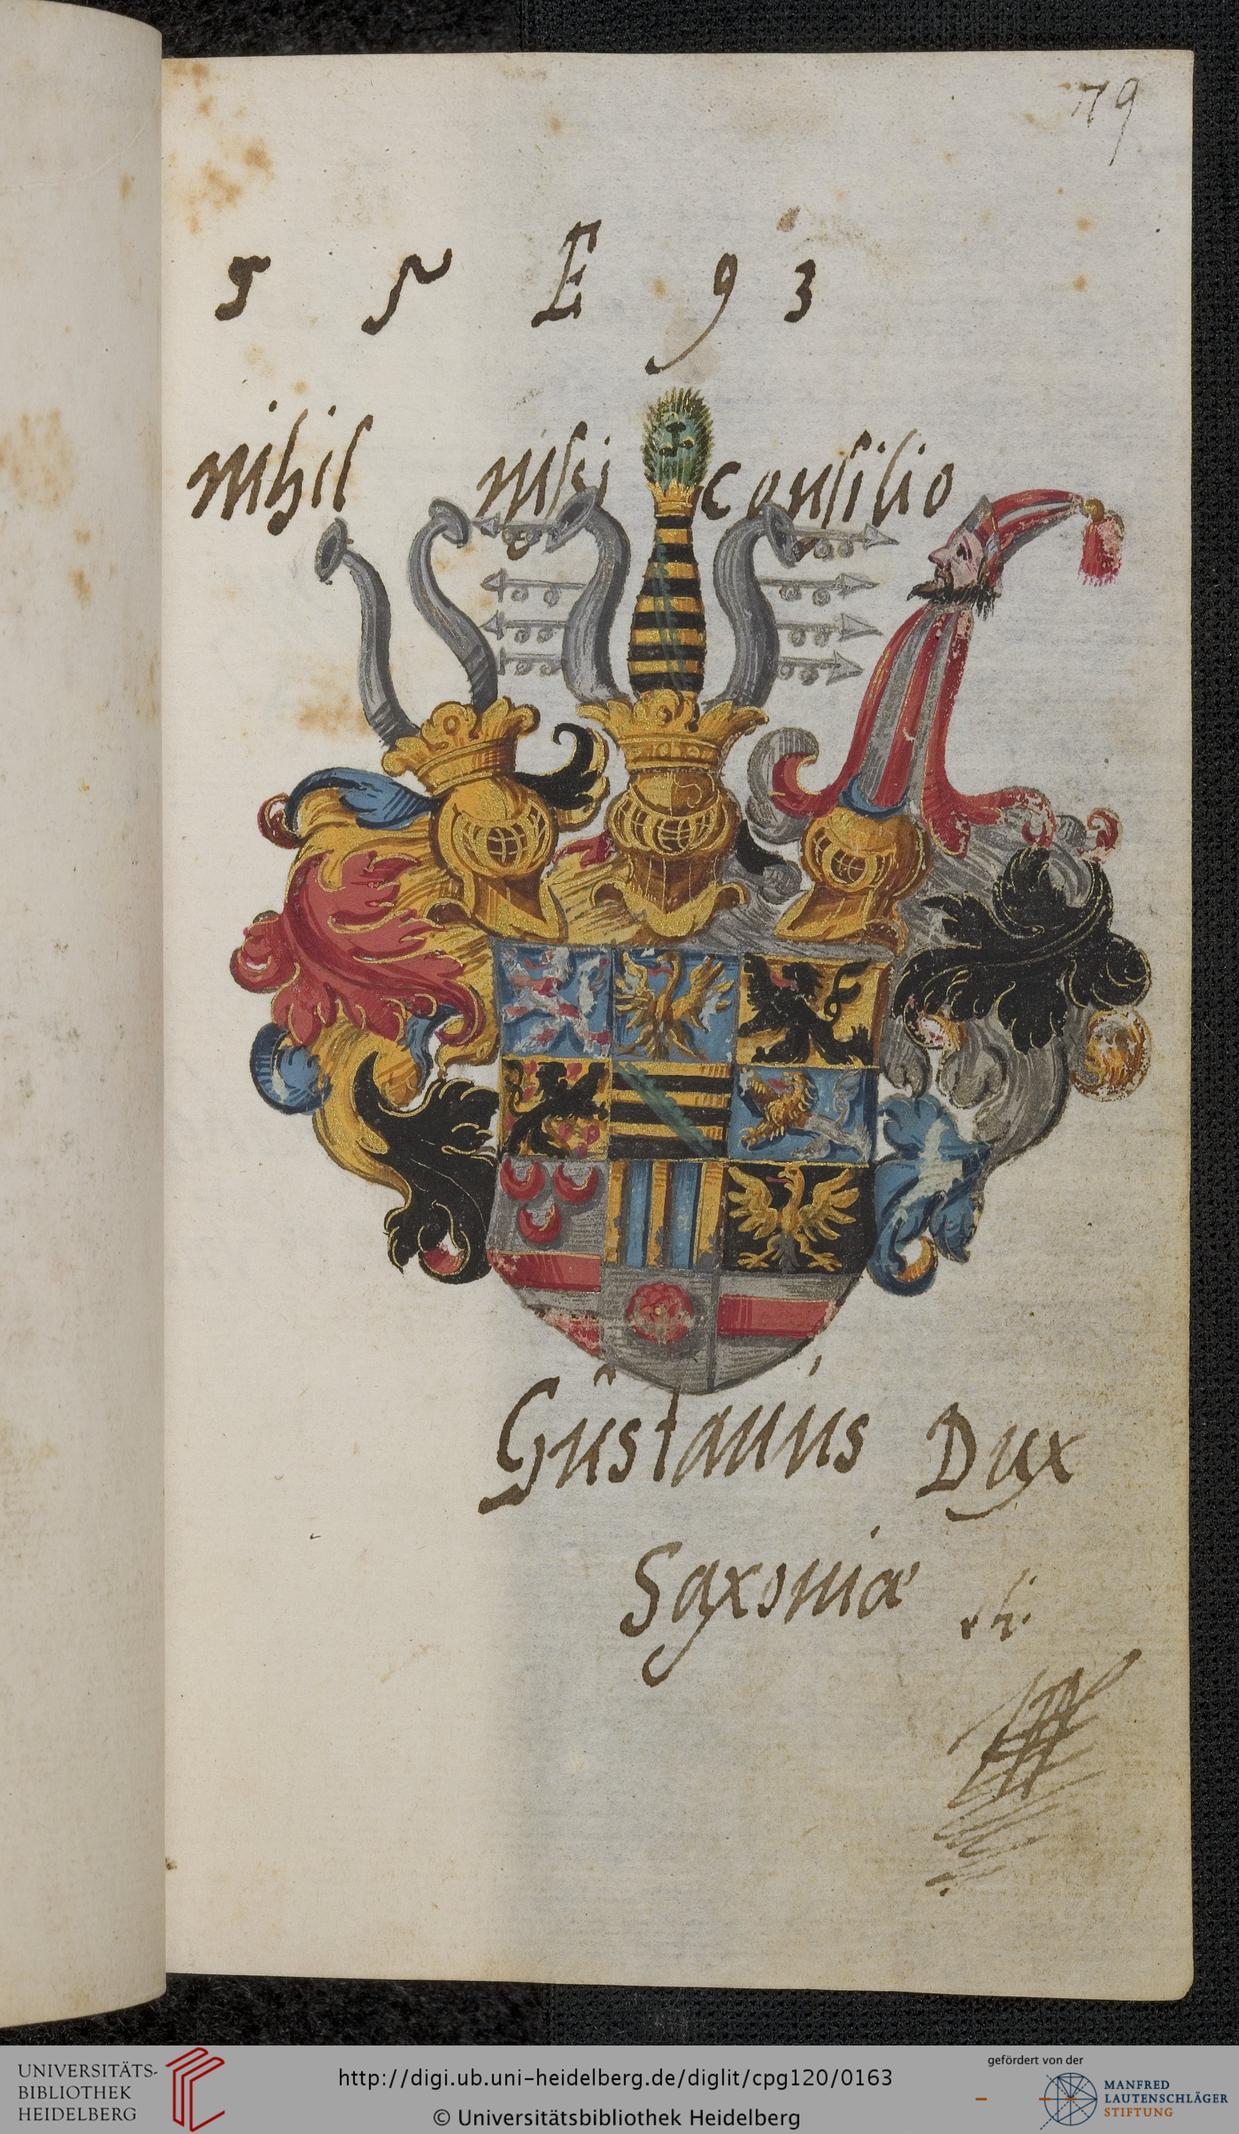 79
5 5 E 93
nihil nisi consilio
Gustavus Dux
Saxoniæ
UNIVERSITÄTS-
BIBLIOTHEK
HEIDELBERG
http://digi.ub.uni-heidelberg.de/diglit/cpg120/0163
© Universitätsbibliothek Heidelberg
gefördert von der
MANFRED
LAUTENSCHLÄGER
STIFTUNG